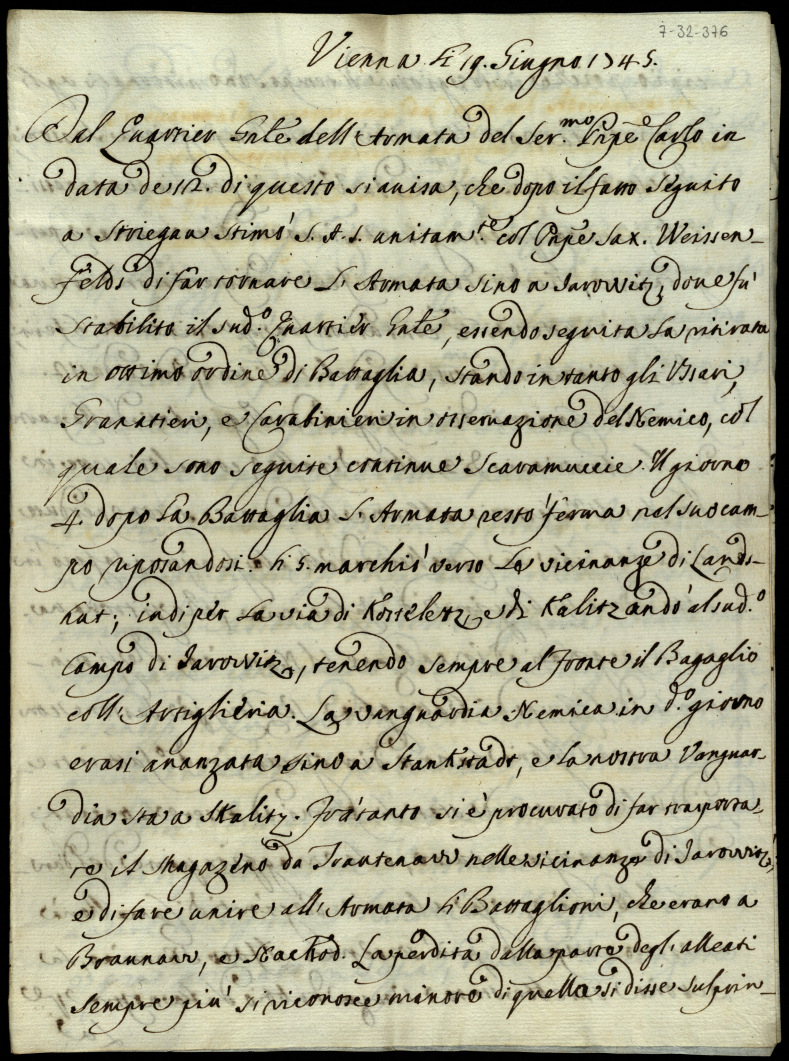 7-32-376
Vienna li 19. Giugno 1745.
Dal Quartier Gnle dell'Armata del Ser.mo Pnpe Carlo in
data de 12. di questo si auisa, che dopo il fatto seguito
a Striegau stimò S. A. S. unitam.te col Pnpe Sax. Weissen-
felds di far tornare l'Armata sino a Jarowitz, doue fù
stabilito il sud.o Quartier Gnle, essendo seguita la ritirata
in ottimo ordine di Battaglia, stando in tanto gli Vssari,
Granatieri, e Carabinieri in osseruazione del Nemico, col
quale sono seguite continue Scaramuccie. Il giorno
4. dopo la Battaglia l'Armata restò ferma nel suo cam-
po riposandosi. li 5. marchiò verso le vicinanze di Lands-
hut; indi per la via di Kosteletz, e di Kalitz andò al sud.o
Campo di Jarowitz, tenendo sempre al fronte il Bagaglio
coll'Artiglieria. La vanguardia Nemica in d.o giorno
erasi auanzata sino a Stankstadt, e la nostra Vanguar-
dia sta a Skalitz. Frà tanto si è procurato di far trasporta-
re il Magazeno da Trautenaw nelle vicinanze di Jarowitz,
e di fare unire all'Armata li Battaglioni, che erano a
Braunaw, e Nachod. La perdita dalla parte degl'alleati
sempre più si riconosce minore di quella si disse sul prin-